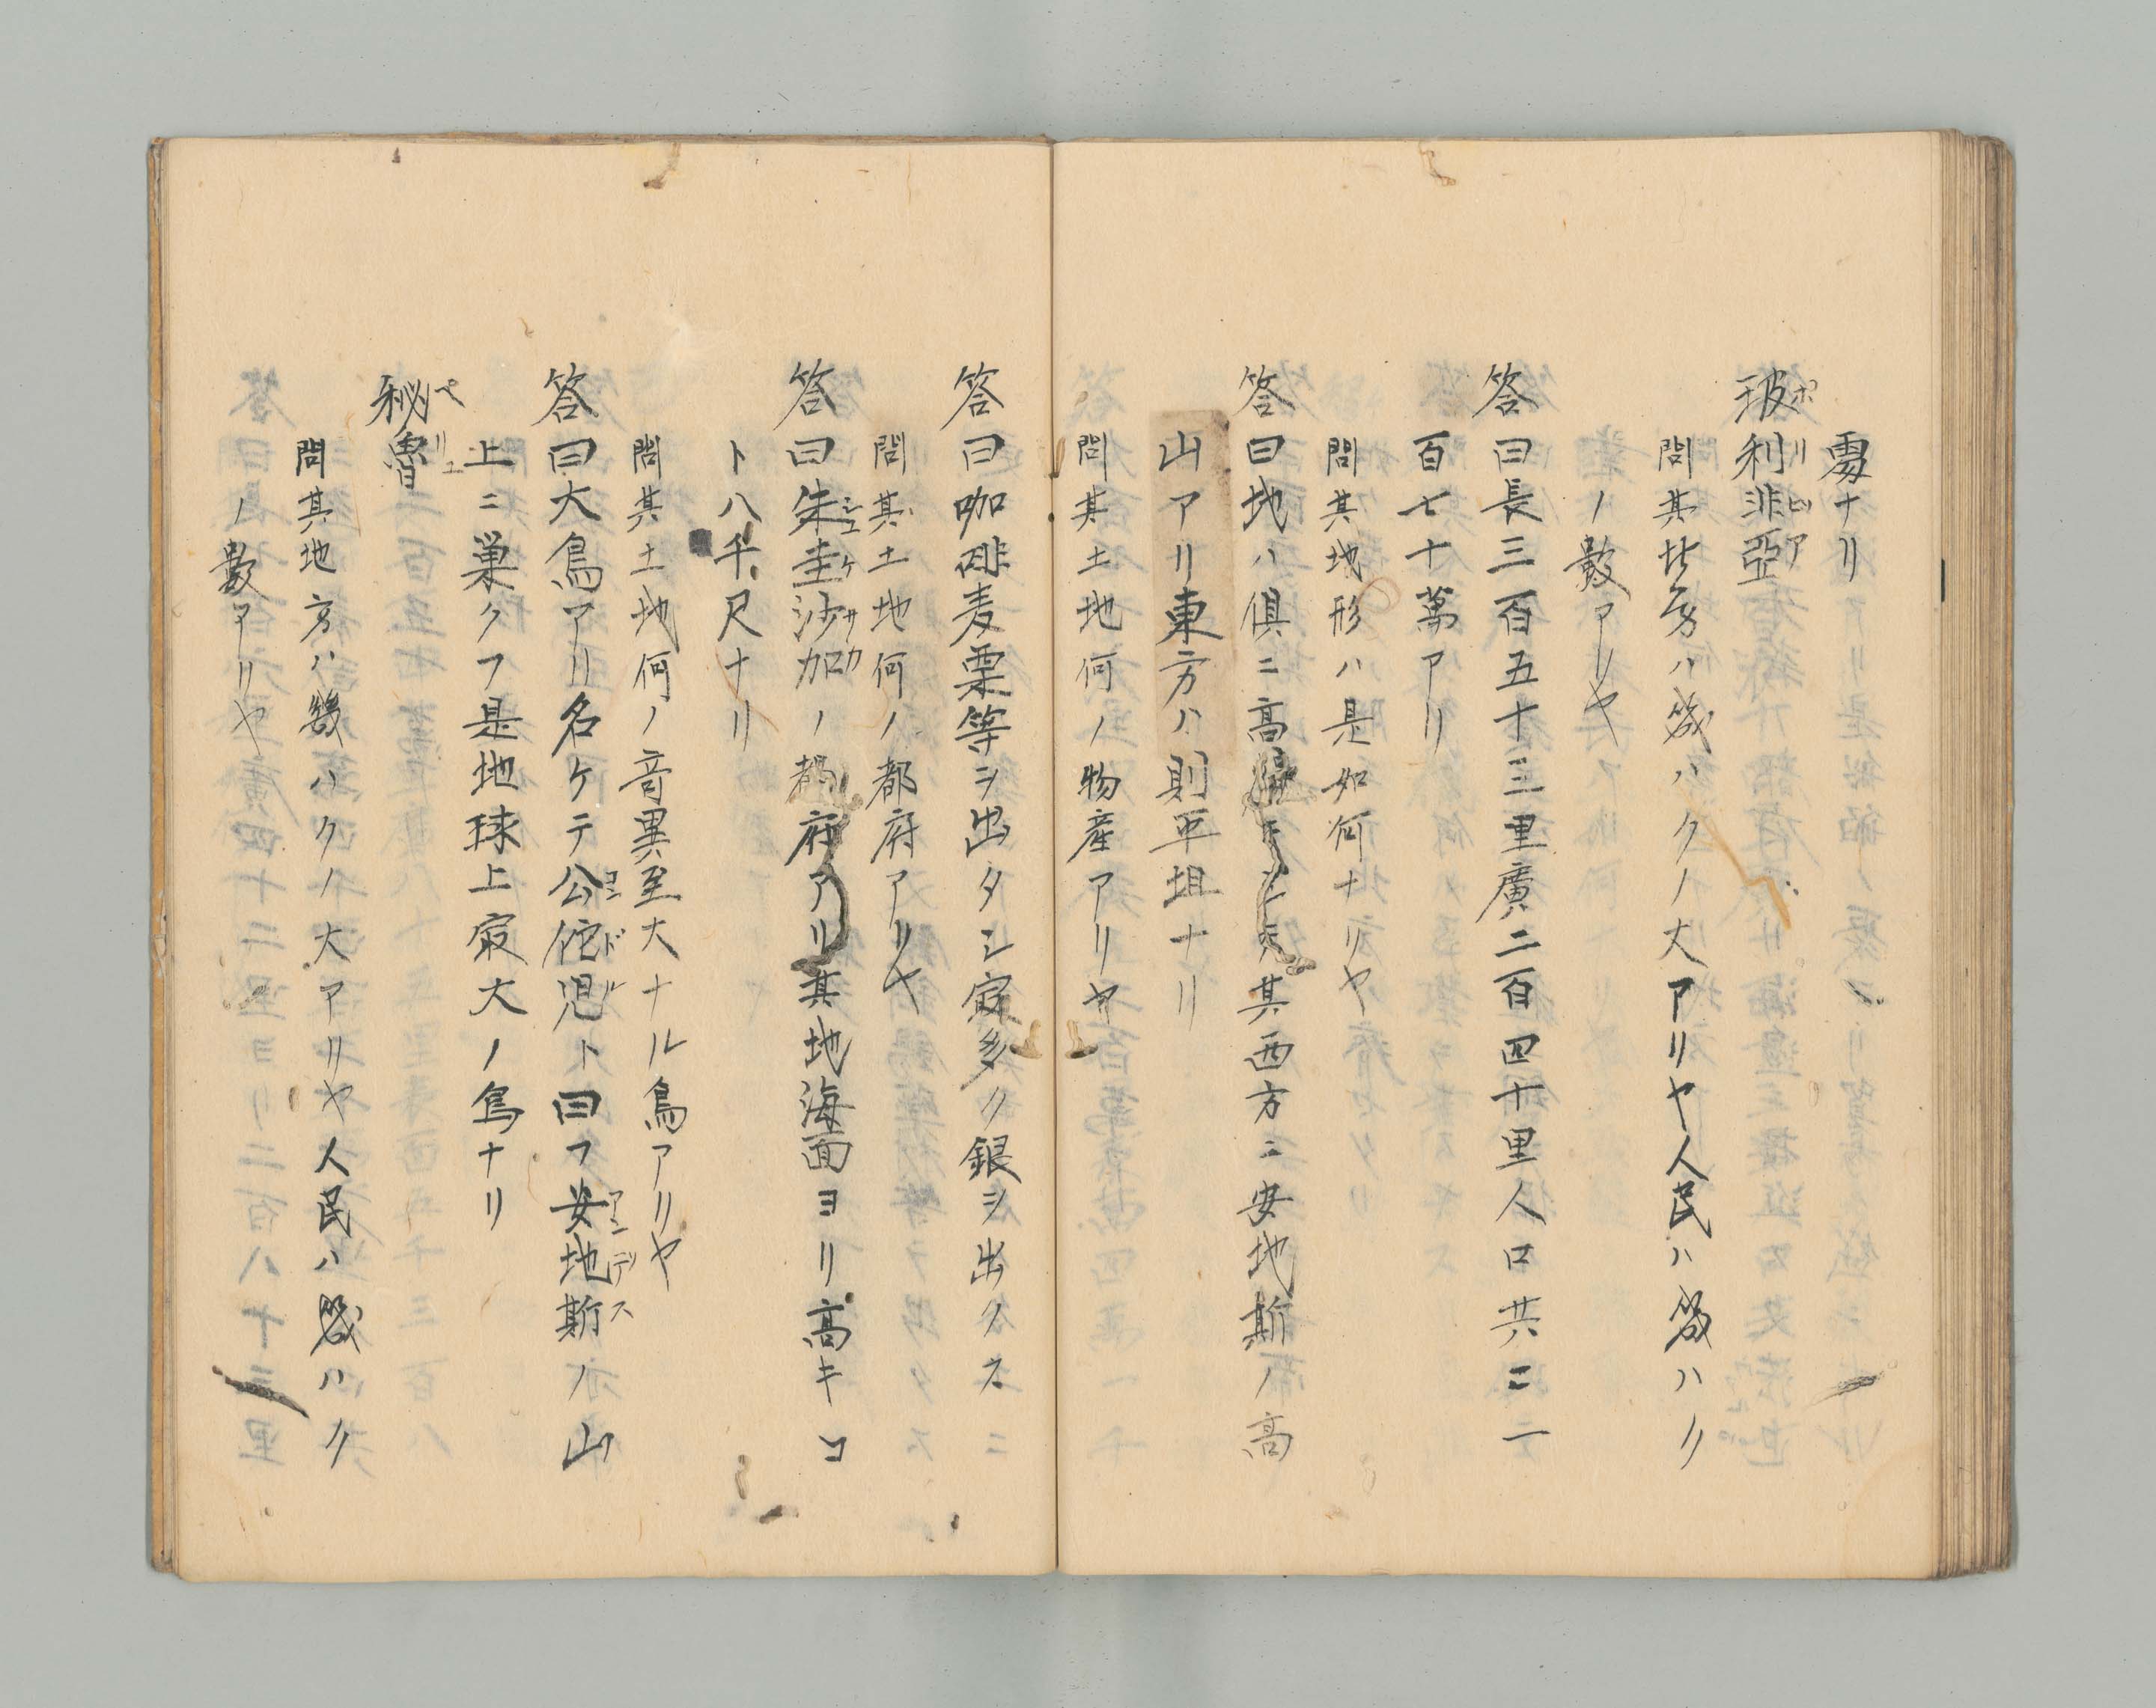 處ナリ
玻利非亞
ポリビア
問其地方ハ幾ハクノ大アリヤ人民ハ幾ハク
ノ數アリヤ
答曰長三百五十三里廣二百四十里人口共ニ二
百七十萬アリ
問其地形ハ是如何ナリヤ
答曰地ハ俱ニ高 其西方ニ安地斯ノ高
山アリ東方ハ則平坦ナリ
問其土地何ノ物産アリヤ
答曰咖啡麦栗等ヲ出タシ寂多ク銀ヲ出タス
問其土地何ノ都府アリヤ
答曰朱圭沙加ノ都府アリ其地海面ヨリ高キコ
シユケサカ
ト八千尺ナリ
問其土地何ノ奇異至大ナル鳥アリヤ
答曰大鳥アリ名ケテ公佗児ト曰フ安地斯ノ山
コンドル
アンデス
上ニ巣クフ是地球上寂大ノ鳥ナリ
秘魯
ペリユ
問其地方ハ幾ハクノ大アリヤ人民ハ幾ハク
ノ數アリヤ